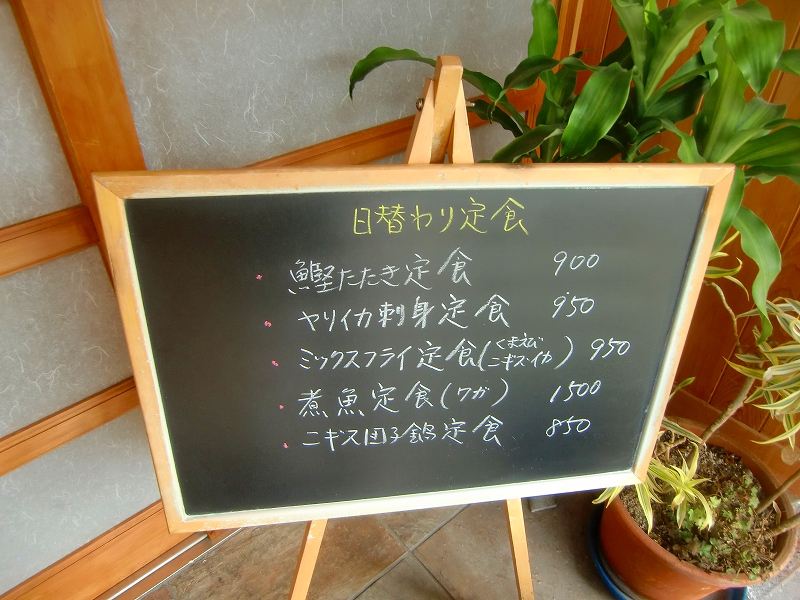 日替わり定食
・鰹たたき定食 900
・ヤリイカ刺身定食 950
・ミックスフライ定食(くまえび ニギス・イカ) 950
・煮魚定食(ワガ) 1500
・ニギス団子鍋定食 850